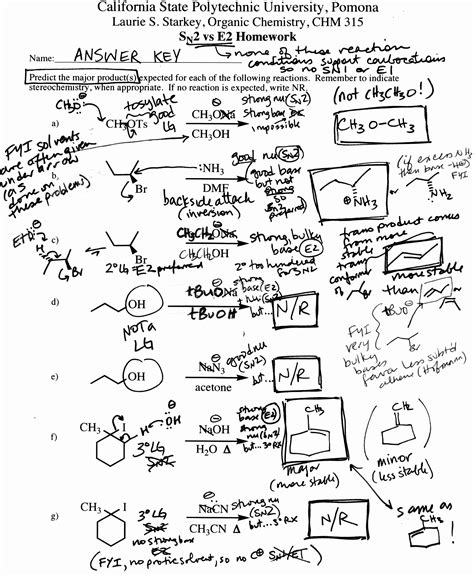 California State Polytechnic University, Pomona
Laurie S. Starkey, Organic Chemistry, CHM 315
SN2 vs E2 Homework
Name: ANSWER KEY
none of these reaction
conditions support carbocations
so no SN1 or E1
Predict the major product(s) expected for each of the following reactions. Remember to indicate
stereochemistry, when appropriate. If no reaction is expected, write NR.
(not CH3CH3O!)
tosylate
= good
LG
strong nu (SN2)
strong base
impossible
a) CH3OTs
CH3ONa
CH3OH
CH3O-CH3
FYI solvents
are often given
under arrow
(as
done on
these problems)
b)
Br
:NH3
DMF
good nu (SN2)
good base
but not
strong
so
SN2
preferred
backside attack
(inversion)
NH3
(if excess NH3
then base
FYI
NH2
c)
EtO
H
Br
Br
CH3CH2ONa
CH3CH2OH
strong bulky
base (E2)
2° LG E2 preferred
2° too hindered
for SN2
trans product comes
from more
stable
trans
conformer
more stable
than
d)
OH
NOT a
LG
tBuONa
tBuOH
strong
base (E2)
but...
N/R
FYI
very
bulky
bases
favor less subst'd
alkene (Hofmann)
tBuO
Br
e)
OH
NaN3
acetone
good nu
(SN2)
but...
N/R
f)
CH3
I
H
OH
3° LG
SN2
NaOH
H2O Δ
strong
base (E2)
strong
nu (SN2)
but...3° RX
CH3
major
(more stable)
CH2
minor
(less stable)
g)
CH3
I
3° LG
SN2
no strong base
NaCN
CH3CN Δ
strong nu
(SN2)
but...3° RX
N/R
same as
CH3
!
(FYI, no protic solvent, so no C⊕ SN1/E1)